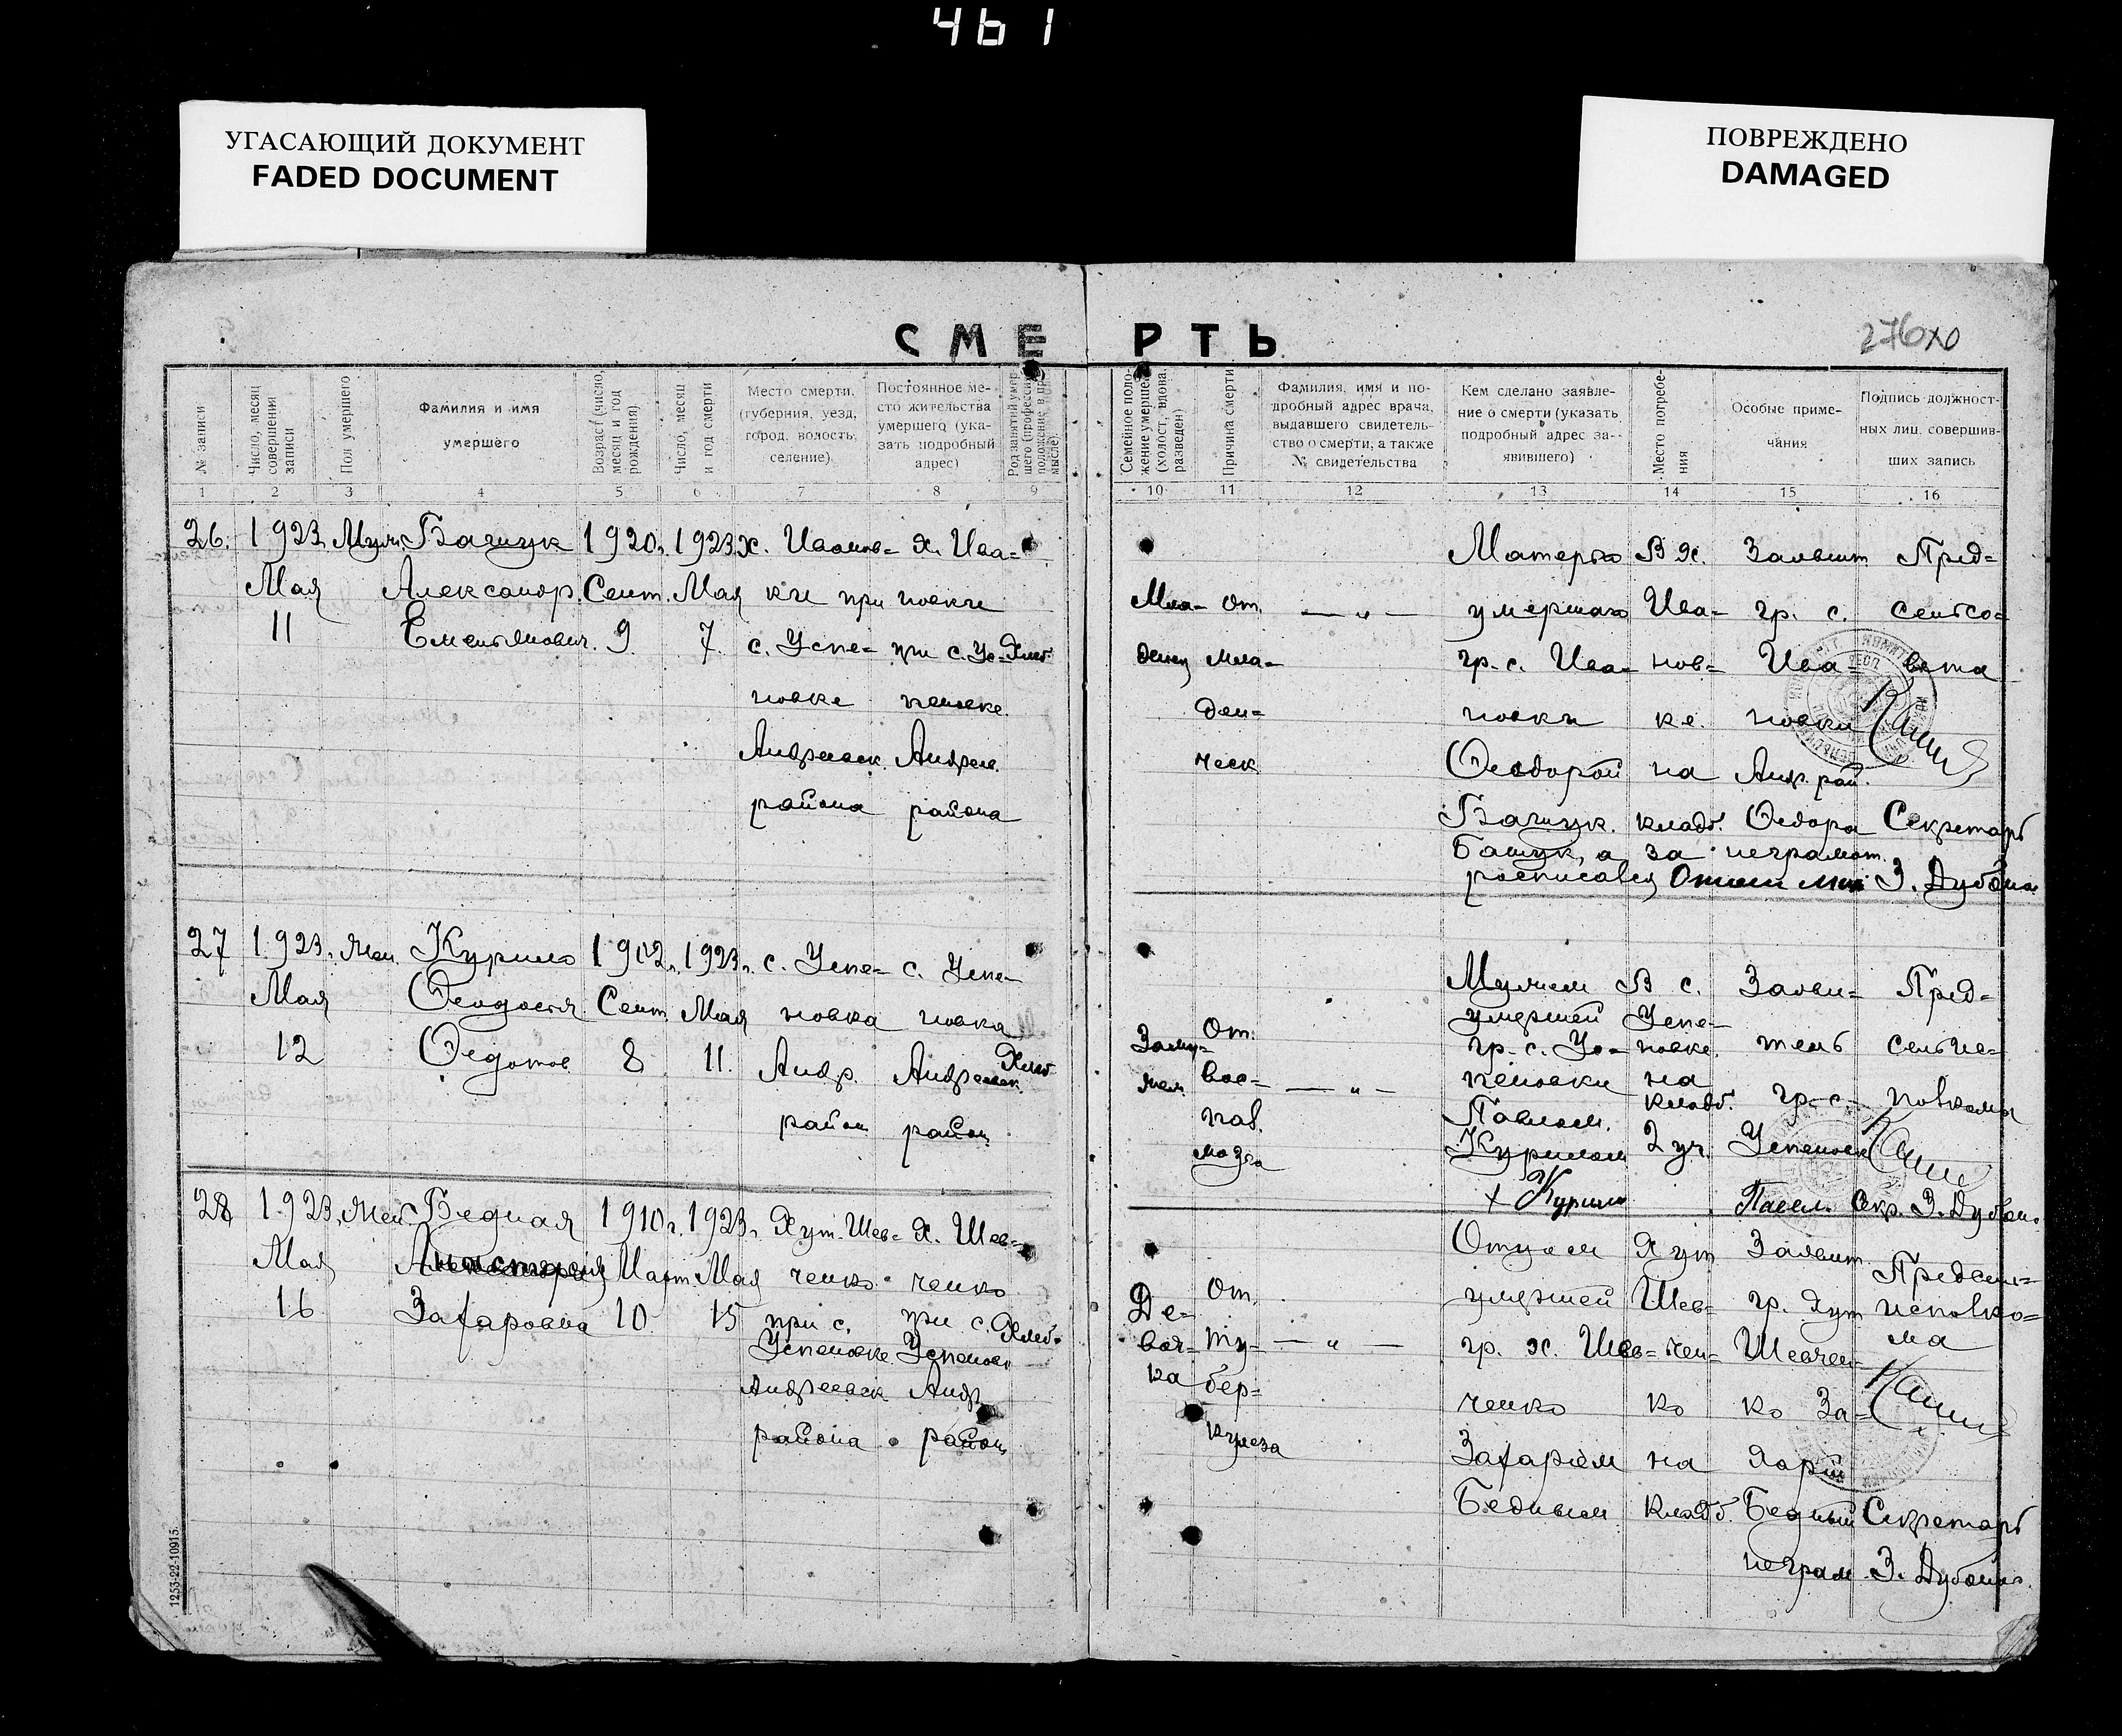 461
УГАСАЮЩИЙ ДОКУМЕНТ
FADED DOCUMENT
ПОВРЕЖДЕНО
DAMAGED
СМЕРТЬ
276
№ записи
Число, месяц совершения записи
Пол умершего
Фамилия и имя
умершего
Возраст (число, месяц и год рождения)
Число, месяц и год смерти
Место смерти,
(губерния, уезд,
город, волость,
селение)
Постоянное ме-
сто жительства
умершего (ука-
зать подробный
адрес)
Род занятий умер-
шего (профессия,
положение в про-
мысле)
Семейное поло-
жение умершего
(холост, вдова,
разведен)
Причина смерти
Фамилия, имя и по-
дробный адрес врача,
выдавшего свидетель-
ство о смерти, а также
№ свидетельства
Кем сделано заявле-
ние о смерти (указать
подробный адрес за-
явившего)
Место погребе-
ния
Особые приме-
чания
Подпись должност-
ных лиц, совершив-
ших запись
1 2 3 4 5 6 7 8 9 10 11 12 13 14 15 16
26.
1923
Мая
11
Муж.
Башук
Александр.
Емельянович.
1920г.
Сент.
9.
1923
Мая
7.
х. Иванов-
ки при
с. Успе-
новке
Андреевск.
района
х. Ива-
новки
при с. Ус-
пеновке.
Андреев.
района
Хлеб.
Мла-
денец
От.
мла-
ден-
ческ
— „ —
Матерью
умершаго
гр. с. Ива-
новки
Феодорой
Башук.
В х.
Ива-
нов-
ке.
на
кладб.
Заявит
гр. с.
Ива-
новки
Анд. рай.
Федора
Башук, а за неграмот.
росписался
Пред-
сельсо-
вета
Секретарь
З. Дубо
27
1923г.
Мая
12
Жен.
Курило
Феодосия
Федотов.
1902г.
Сент.
8
1923г.
Мая
11.
с. Успе-
новка
Андр.
район
с. Успе-
новка
Андреевск.
район
Хлеб
Заму-
жем
От.
вос-
пал.
мозга
— „ —
Мужем
умершей
гр. с. Ус-
пеновки
Павлом.
Курилом
+ Курило
В с.
Успе-
новке.
на
кладб.
2 уч.
Заяви-
тель
гр. с.
Успеновк
Павел
Пред-
сельис-
полкома
Секр. З. Дубо
28
1923г.
Мая
16
Жен.
Бедная
Анастасия
Захаровна
1910г.
Март
10
1923г.
Мая
15
Хут. Шев-
ченко
при с.
Успеновке
Андреевск
района
Х. Шев-
ченко
при с.
Успеновк
Андр.
район
Хлеб.
Де-
воч-
ка
От.
ту-
бер-
кулеза
— „ —
Отцем
умершей
гр. х. Шев-
ченко
Захарием
Бедным
Хут
Шев-
чен-
ко
на
кладб.
Заявит
гр. хут
Шевчен-
ко За-
харий
Бедный
неграм
Предсель-
исполко-
ма
Секретарь
З. Дубо
1253-22-10915.